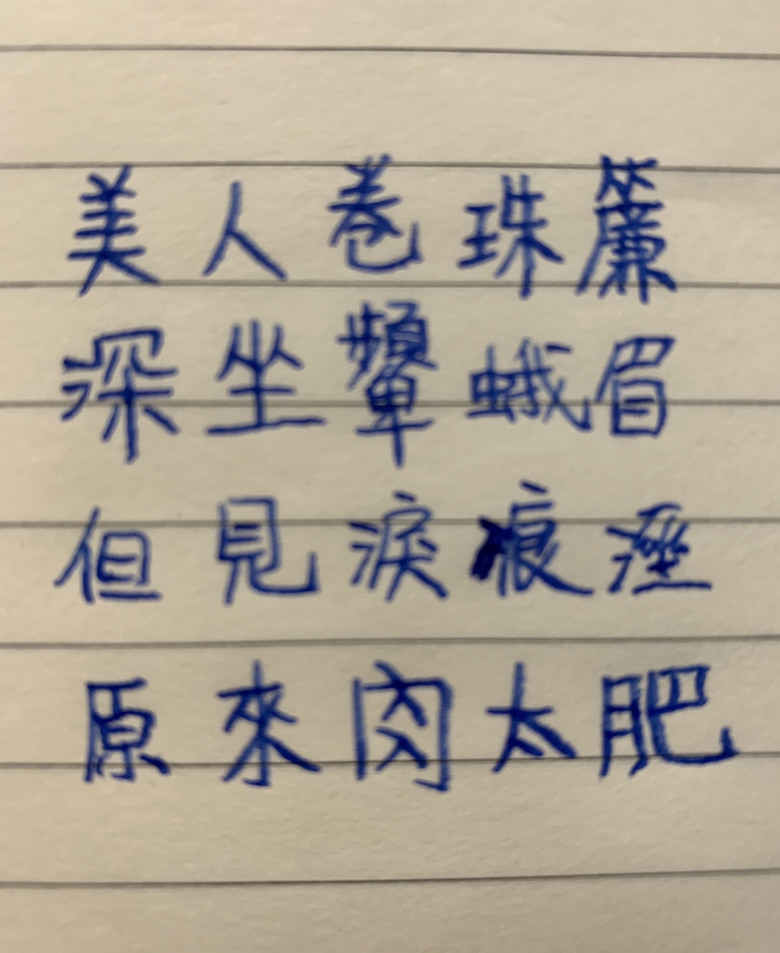 美人卷珠簾
深坐顰蛾眉
但見淚痕溼
原來肉太肥